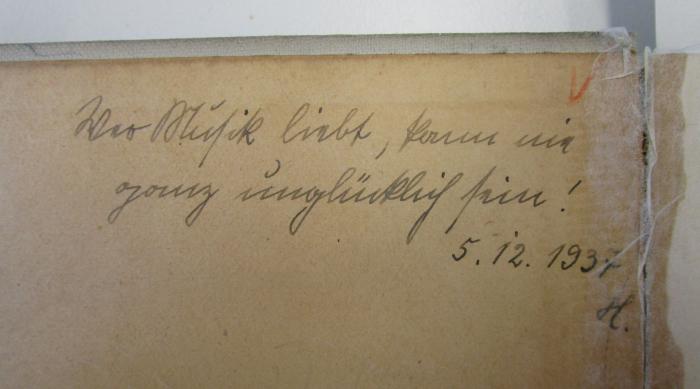 Wer Musik liebt, kann nie
ganz unglücklich sein!
5.12.1937
H.